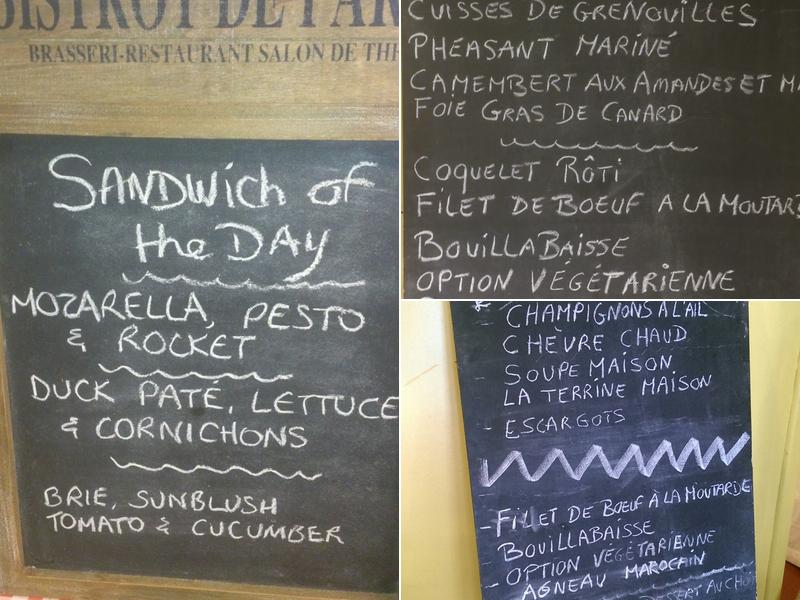 BISTROT DE PAR
BRASSERI-RESTAURANT SALON DE THE
SANDWich of
the DAY
MOZARELLA, PESTO
& ROCKET
DUCK PATÉ, LETTUCE
& CORNICHONS
BRIE, SUNBLUSH
TOMATO & CUCUMBER
CUISSES DE GRENOUILLES
PHEASANT MARINÉ
CAMEMBERT AUX AMANDES ET
FOIE GRAS DE CANARD
COQUELET RÔTI
FILET DE BOEUF A LA MOUTARD
BOUILLABAISSE
OPTION VÉGÉTARIENNE
CHAMPIGNONS A L'AIL
CHÈVRE CHAUD
SOUPE MAISON
LA TERRINE MAISON
- ESCARGOTS
- FILLET DE BOEUF À LA MOUTARDE
- BOUILLABAISSE
- OPTION VEGÉTARIENNE
- AGNEAU MAROCAIN
DESSERT AU CHO